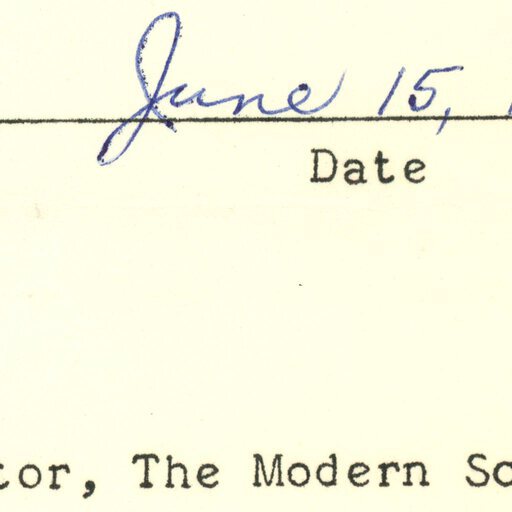 June 15,
Date
tor, The Modern Sc